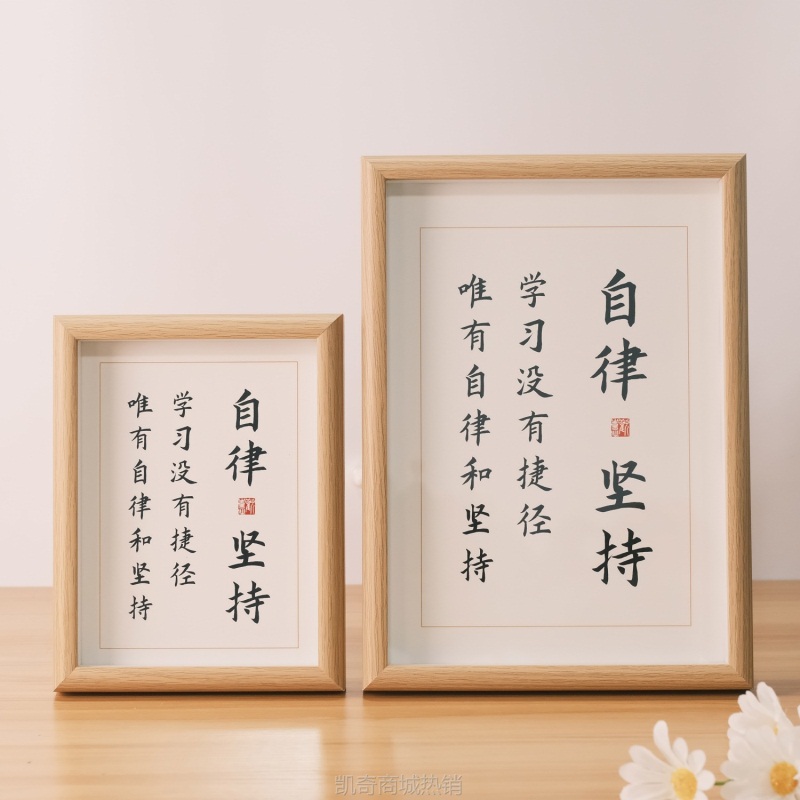 自律 坚持
学习没有捷径
唯有自律和坚持
自律 坚持
学习没有捷径
唯有自律和坚持
凯奇商城热销